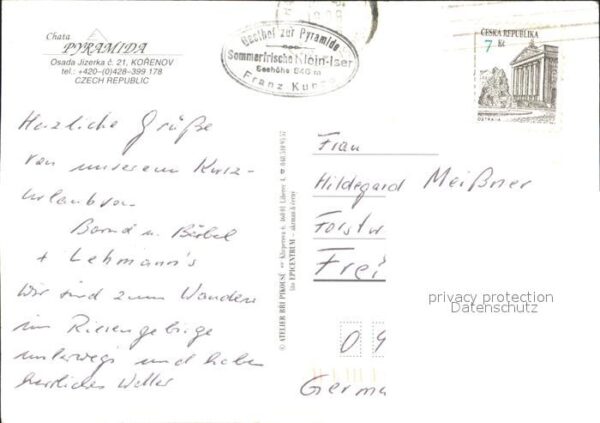 Chata
PYRAMIDA
Osada Jizerka č. 21, KOŘENOV
tel.: +420–(0)428–399 178
CZECH REPUBLIC
Gasthof zur Pyramide
Sommerfrische Klein-Iser
Seehöhe 840 m
Franz
ČESKÁ REPUBLIKA
7 Kč
OSTRAVA
Herzliche Grüße
von unserem Kurz-
urlaub von
Bernd u. Bärbel
+ Lehmann's
Wir sind zum Wandern
im Riesengebirge
unterwegs und haben
herrliches Wetter
© ATELIER JIŘÍ PIKOUS
Liberec 4,
EPICENTRUM
Frau
Hildegard Meißner
Forstw
Frei
0 9
Germa
privacy protection
Datenschutz